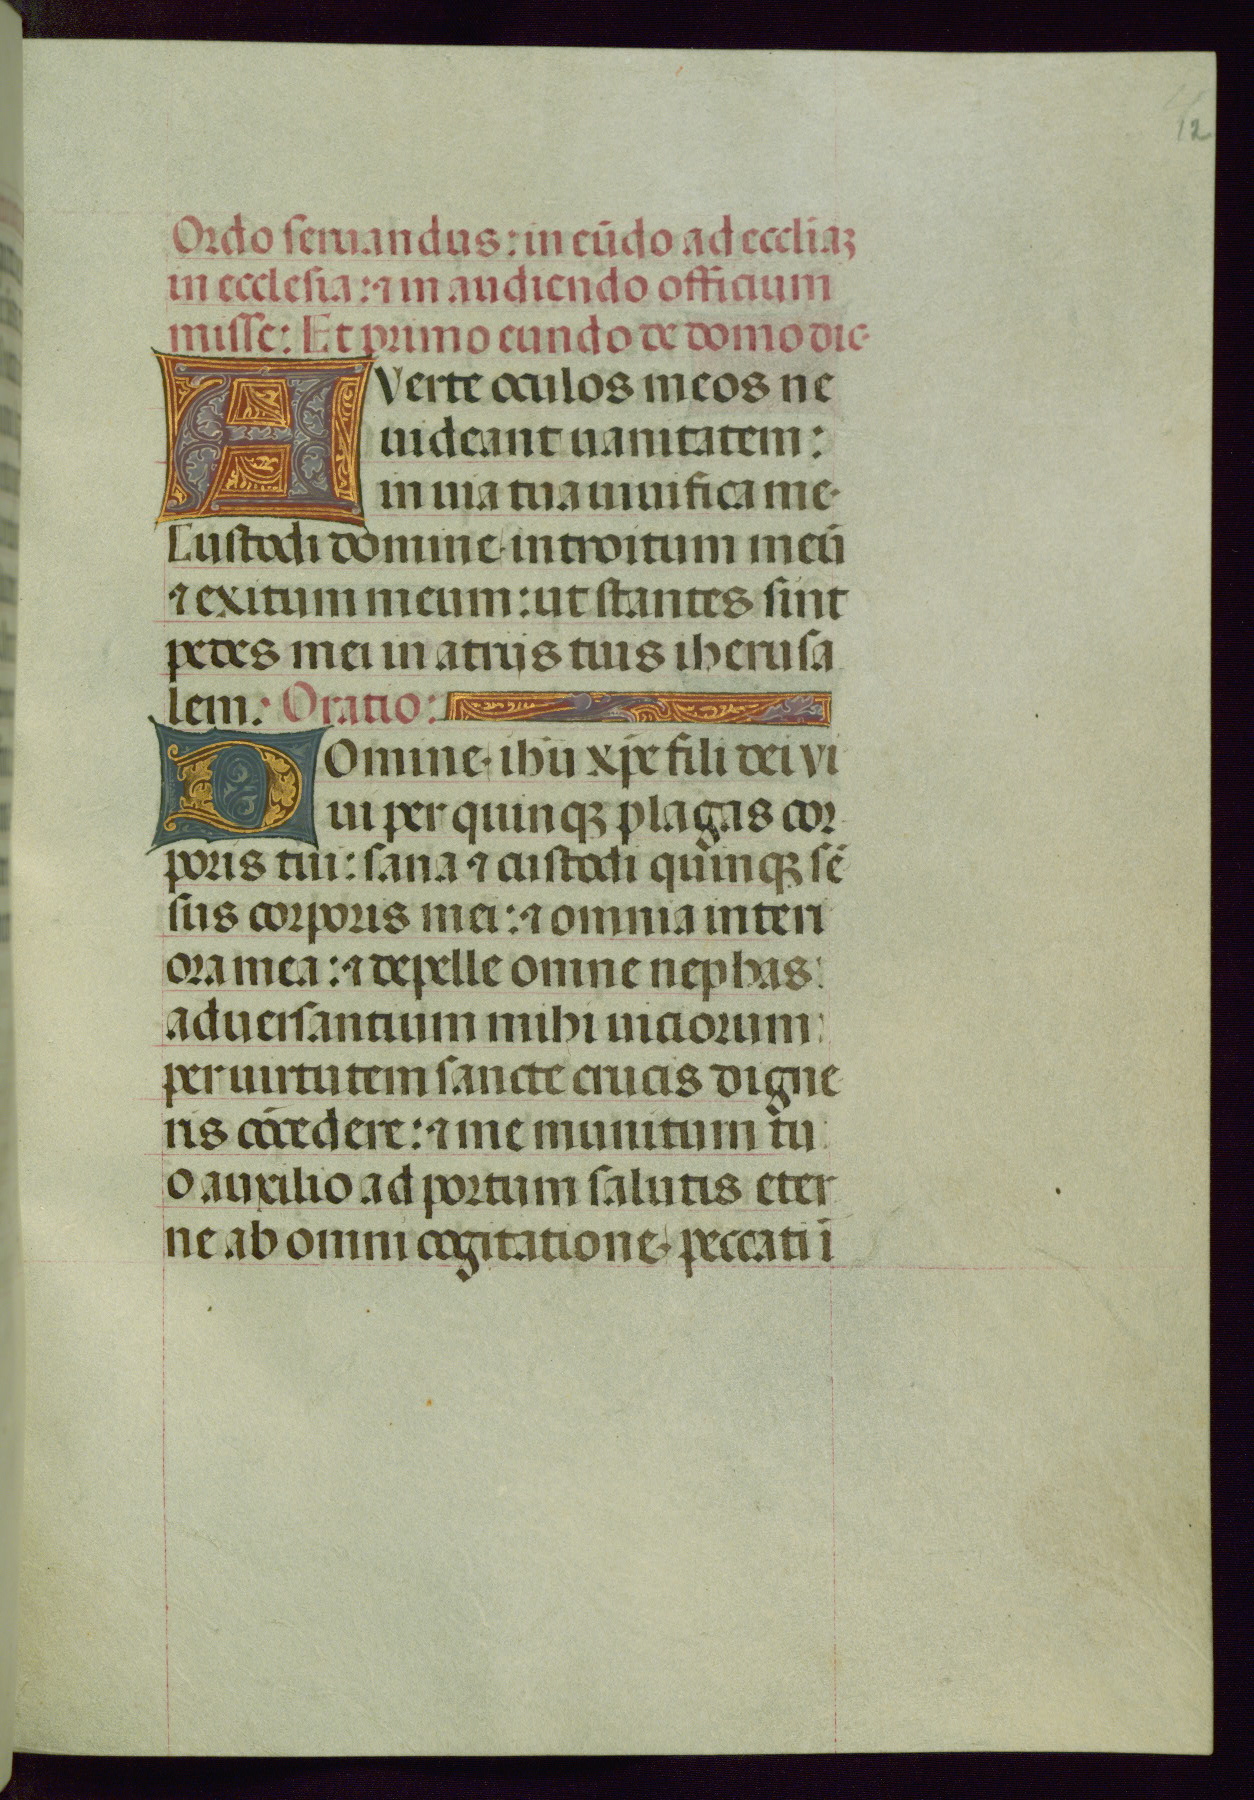 12
Ordo seruandus: in eūdo ad eccliaꝫ
in ecclesia: ⁊ in audiendo officium
misse: Et primo eundo de domo dic·
AVerte oculos meos ne
uideant uanitatem:
in uia tua uiuifica me·
Custodi domine· introitum meū
⁊ exitum meum: ut stantes sint
pedes mei in atrijs tuis iherusa
lem: Oratio:
DOmine· ihū xp̄e fili dei vi
ui per quinqꝫ plagas cor
poris tui: sana ⁊ custodi quinqꝫ sē
sus corporis mei: ⁊ omnia interi
ora mea: ⁊ depelle omne nephas:
aduersantium mihi uiciorum:
per uirtutem sancte crucis digne
ris cōcedere: ⁊ me munitum tu
o auxilio ad portum salutis eter
ne ab omni cogitatione· peccati ī